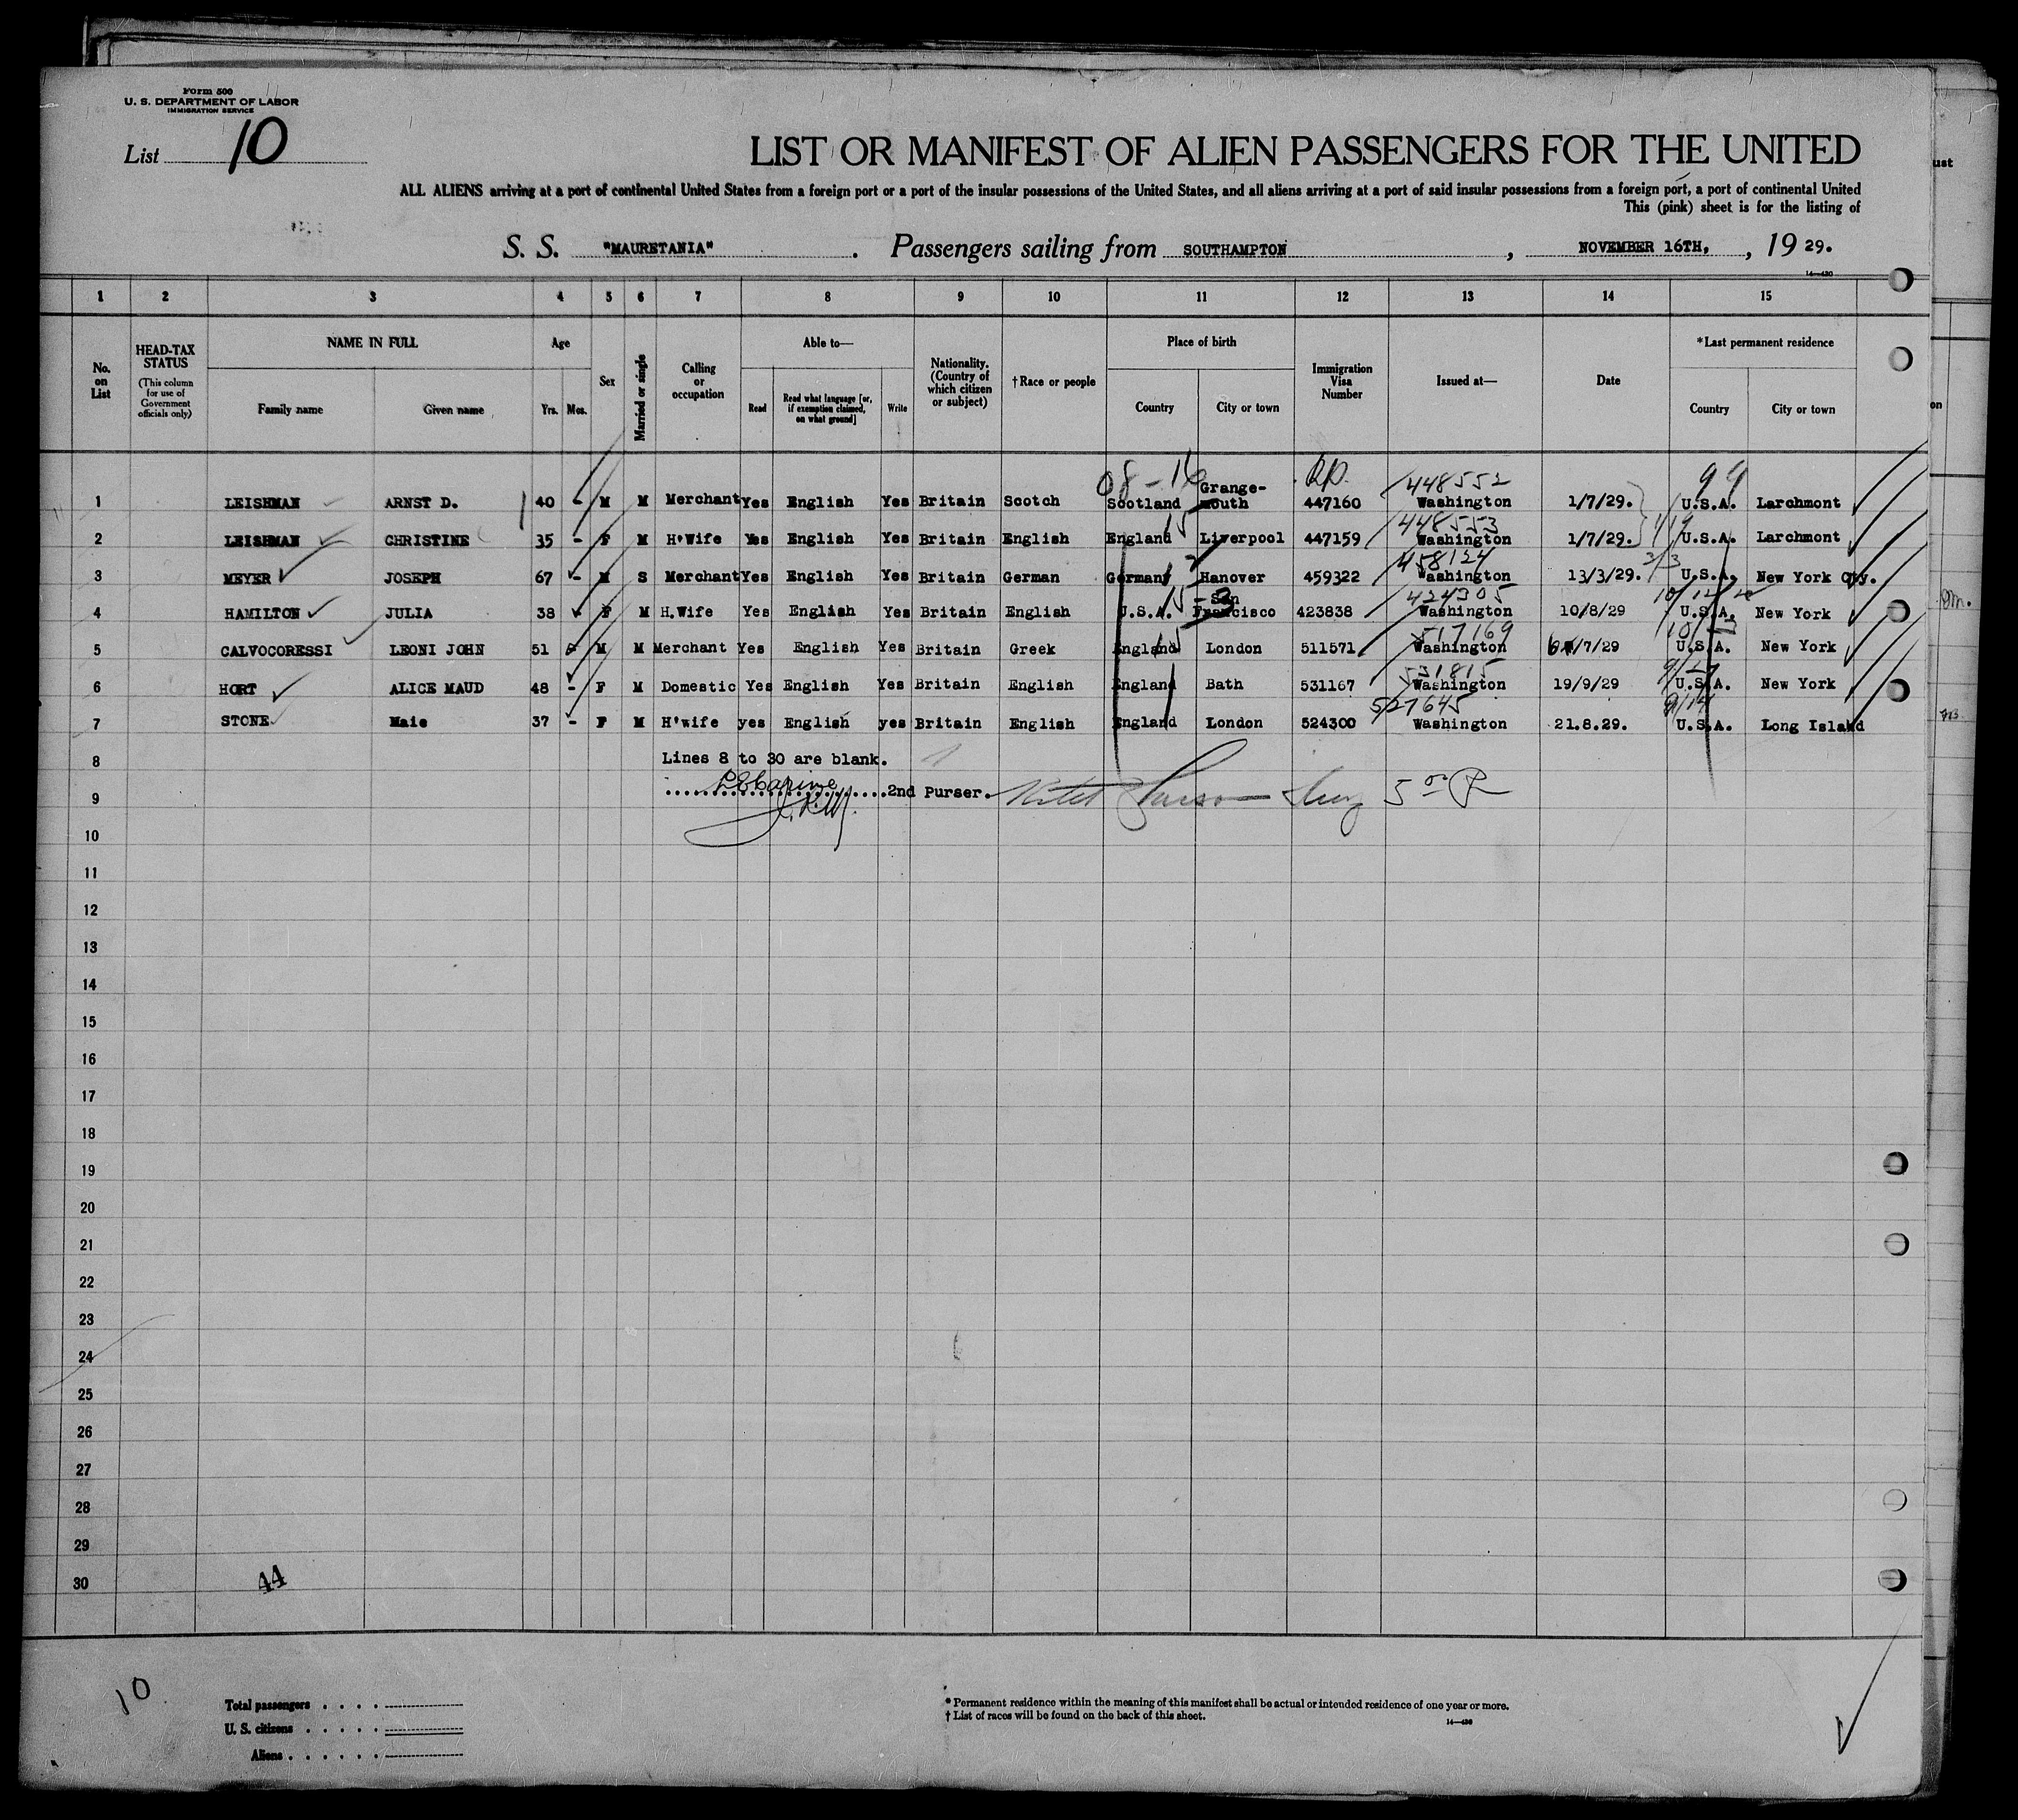 Form 500
U. S. DEPARTMENT OF LABOR
IMMIGRATION SERVICE
List 10
LIST OR MANIFEST OF ALIEN PASSENGERS FOR THE UNITED
ALL ALIENS arriving at a port of continental United States from a foreign port or a port of the insular possessions of the United States, and all aliens arriving at a port of said insular possessions from a foreign port, a port of continental United
This (pink) sheet is for the listing of
S. S. "MAURETANIA" . Passengers sailing from SOUTHAMPTON , NOVEMBER 16TH, , 19 29.
14—430
1 2 3 4 5 6 7 8 9 10 11 12 13 14 15
No. on List
HEAD-TAX STATUS
(This column for use of Government officials only)
NAME IN FULL
Family name Given name
Age
Yrs. Mos.
Sex
Married or single
Calling or occupation
Able to—
Read
Read what language [or, if exemption claimed, on what ground]
Write
Nationality. (Country of which citizen or subject)
† Race or people
Place of birth
Country City or town
Immigration Visa Number
Issued at—
Date
* Last permanent residence
Country City or town
08-16 448552 99
1 LEISHMAN ARNST D. 40 - M M Merchant Yes English Yes Britain Scotch Scotland Grange-mouth 447160 Washington 1/7/29. U.S.A. Larchmont
15 448553
2 LEISHMAN CHRISTINE 35 - F M H'Wife Yes English Yes Britain English England Liverpool 447159 Washington 1/7/29. U.S.A. Larchmont
458124 3/3
3 MEYER JOSEPH 67 - M S Merchant Yes English Yes Britain German Germany Hanover 459322 Washington 13/3/29. U.S.A. New York Cty.
424305
4 HAMILTON JULIA 38 F M H.Wife Yes English Yes Britain English U.S.A. San Francisco 423838 Washington 10/8/29 U.S.A. New York
517169
5 CALVOCORESSI LEONI JOHN 51 - M M Merchant Yes English Yes Britain Greek England London 511571 Washington /7/29 U.S.A. New York
531815
6 HORT ALICE MAUD 48 - F M Domestic Yes English Yes Britain English England Bath 531167 Washington 19/9/29 U.S.A. New York
527645
7 STONE Maie 37 - F M H'wife yes English yes Britain English England London 524300 Washington 21.8.29. U.S.A. Long Island
8 Lines 8 to 30 are blank.
9 2nd Purser.
10
11
12
13
14
15
16
17
18
19
20
21
22
23
24
25
26
27
28
29
30
44
10
Total passengers
U. S. citizens
Aliens
* Permanent residence within the meaning of this manifest shall be actual or intended residence of one year or more.
† List of races will be found on the back of this sheet.
14—430
ust
on